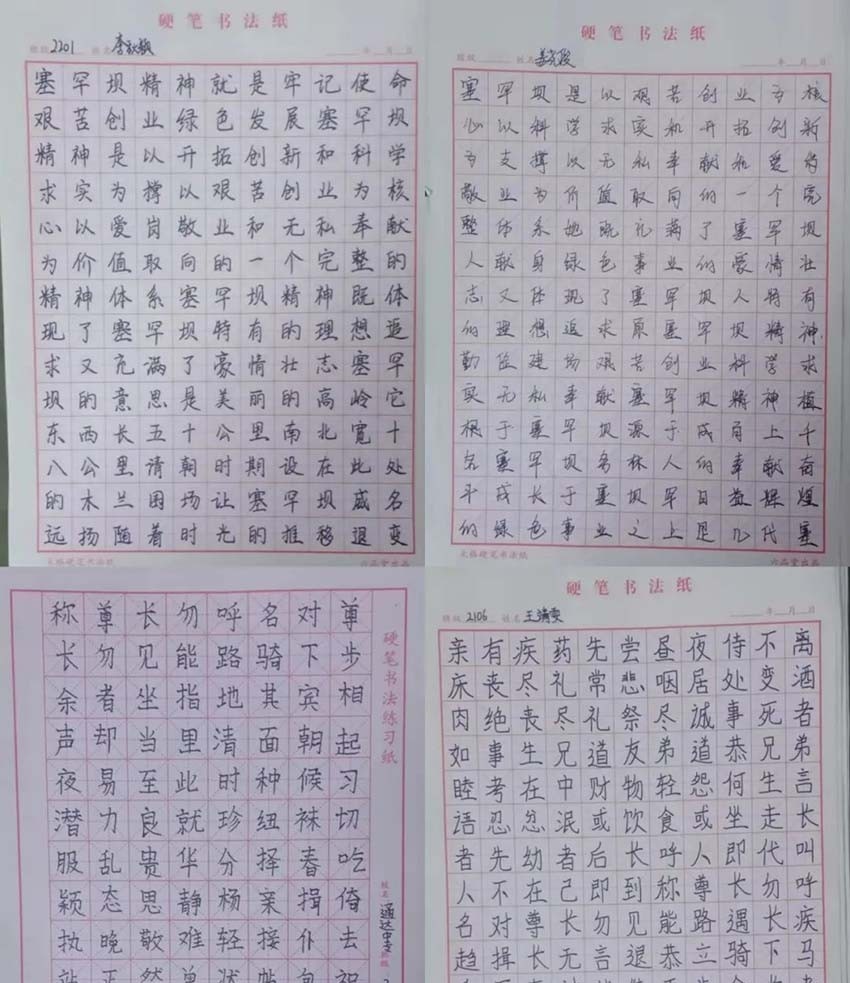 硬笔书法纸
班级 2201 姓名 李 年 月 日
塞罕坝精神就是牢记使命
艰苦创业绿色发展塞罕坝
精神是以开拓创新和科学
求实为撑以艰苦创业为核
心以爱岗敬业和无私奉献
为价值取向的一个完整的
精神体系塞罕坝精神既体
现了塞罕坝特有的理想追
求又充满了豪情壮志塞罕
坝的意思是美丽的高岭它
东西长五十公里南北宽十
八公里清朝时期设在此处
的木兰围场让塞罕坝威名
远扬随着时光的推移退变
六品堂出品
硬笔书法纸
班级 姓名 年 月 日
塞罕坝是以艰苦创业为核
心以科学求实和开拓创新
为支撑以无私奉献和爱岗
敬业为价值取向的一个完
整体系她既充满了塞罕坝
人献身绿色事业的豪情壮
志又体现了塞罕坝人特有
的理想追求原塞罕坝精神
勤俭建场艰苦创业科学求
实无私奉献塞罕坝精神植
根于塞罕坝源于成百上千
名塞罕坝务林人的奉献奋
斗成长于塞坝罕日益辉煌
的绿色事业之上是几代塞
六品堂出品
硬笔书法练习纸
称尊长勿呼名对尊
长勿见能路骑下步
余者坐指地其宾相
声却当里清面朝起
夜易至此时种候习
潜力良就珍纽袜切
服乱贵华分择春吃
颖态思静杨亲揖倚
执晚敬难轻接仆去
姓名 通达中专 班级
硬笔书法纸
班级 2106 姓名 王 年 月 日
亲有疾药先尝昼夜侍不离
床丧尽礼常悲咽居处变酒
肉绝丧尽礼祭尽诚事死者
如事生兄道友弟道恭兄弟
睦考在中财物轻怨何生言
语忍忿泯或饮食或坐走长
者先幼者后长呼人即代叫
人不在己即到称尊长勿呼
名对尊长勿见能路遇长疾
趋揖长无言退恭立骑下马